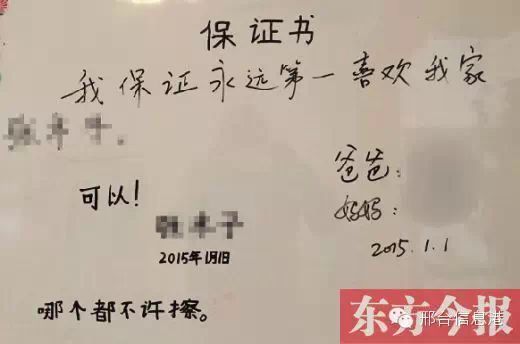 保证书
我保证永远第一喜欢我家
爸爸：
可以！
妈妈：
2015.1.1
2015年1月1日
哪个都不许擦。
东方今报
邢台信息港